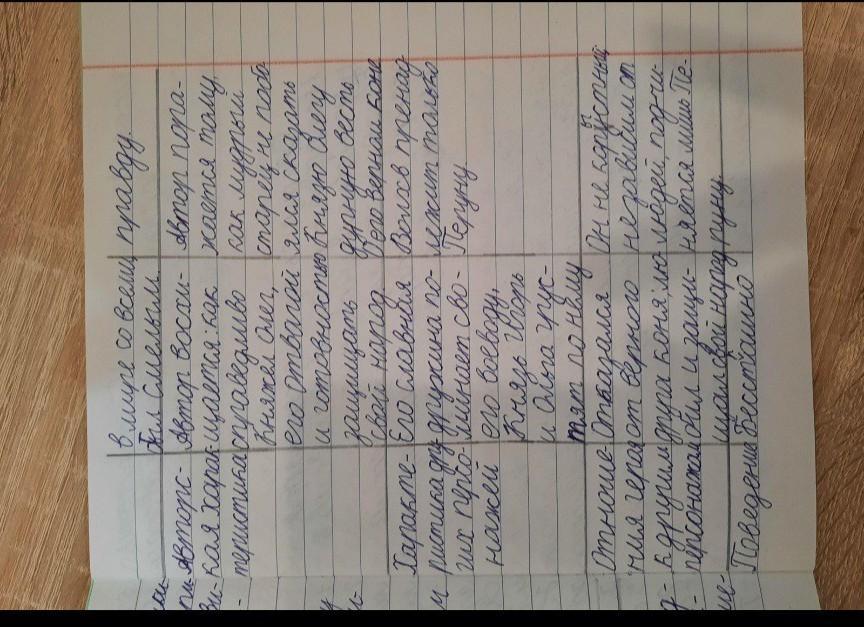 в мире со всеми,
Был смелым.
правду.
Авторс-
кая харак-
теристика
Автор восхи-
щается как
справедливо
Княжил Олег,
его отвагой
и готовностью
защищать
свой народ
Автор пора-
жается тому,
как мудрый
старец не побо
ялся сказать
Князю Олегу
дурную весть
о его верном коне
Характе-
ристика дру-
гих персо-
нажей
Его славная
дружина по-
минает сво-
его воеводу,
Князь Игорь
и Ольга грус-
тят по нему
Волхв пренад
лежит только
Перуну
Отноше-
ния героя
к другим
персонажам
Отказался
от верного
друга коня, лю-
бил и защи-
щал свой народ
Он не корыстный
независим от
людей, подчи-
няется лишь Пе-
руну.
Поведение
Бесстрашно